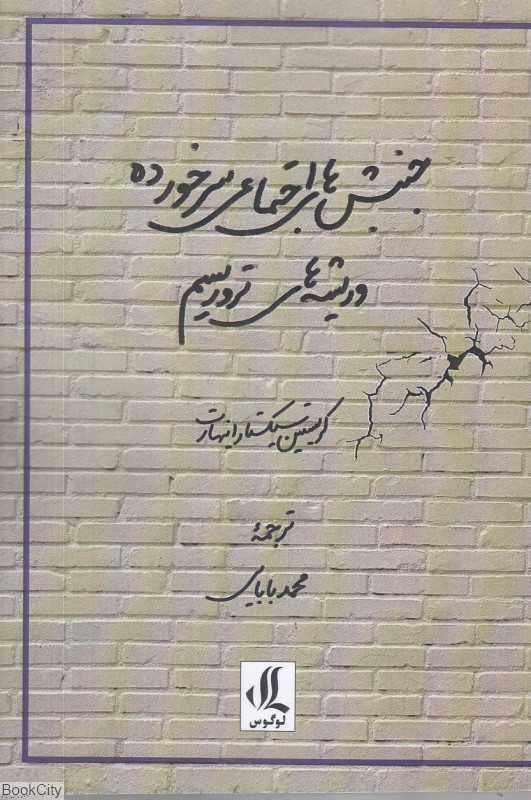 جنبش های اجتماعی سرخورده
و ریشه های تروریسم
کریستین سیکستا راینهارت
ترجمۀ
محمد بابایی
لوگوس
BookCity